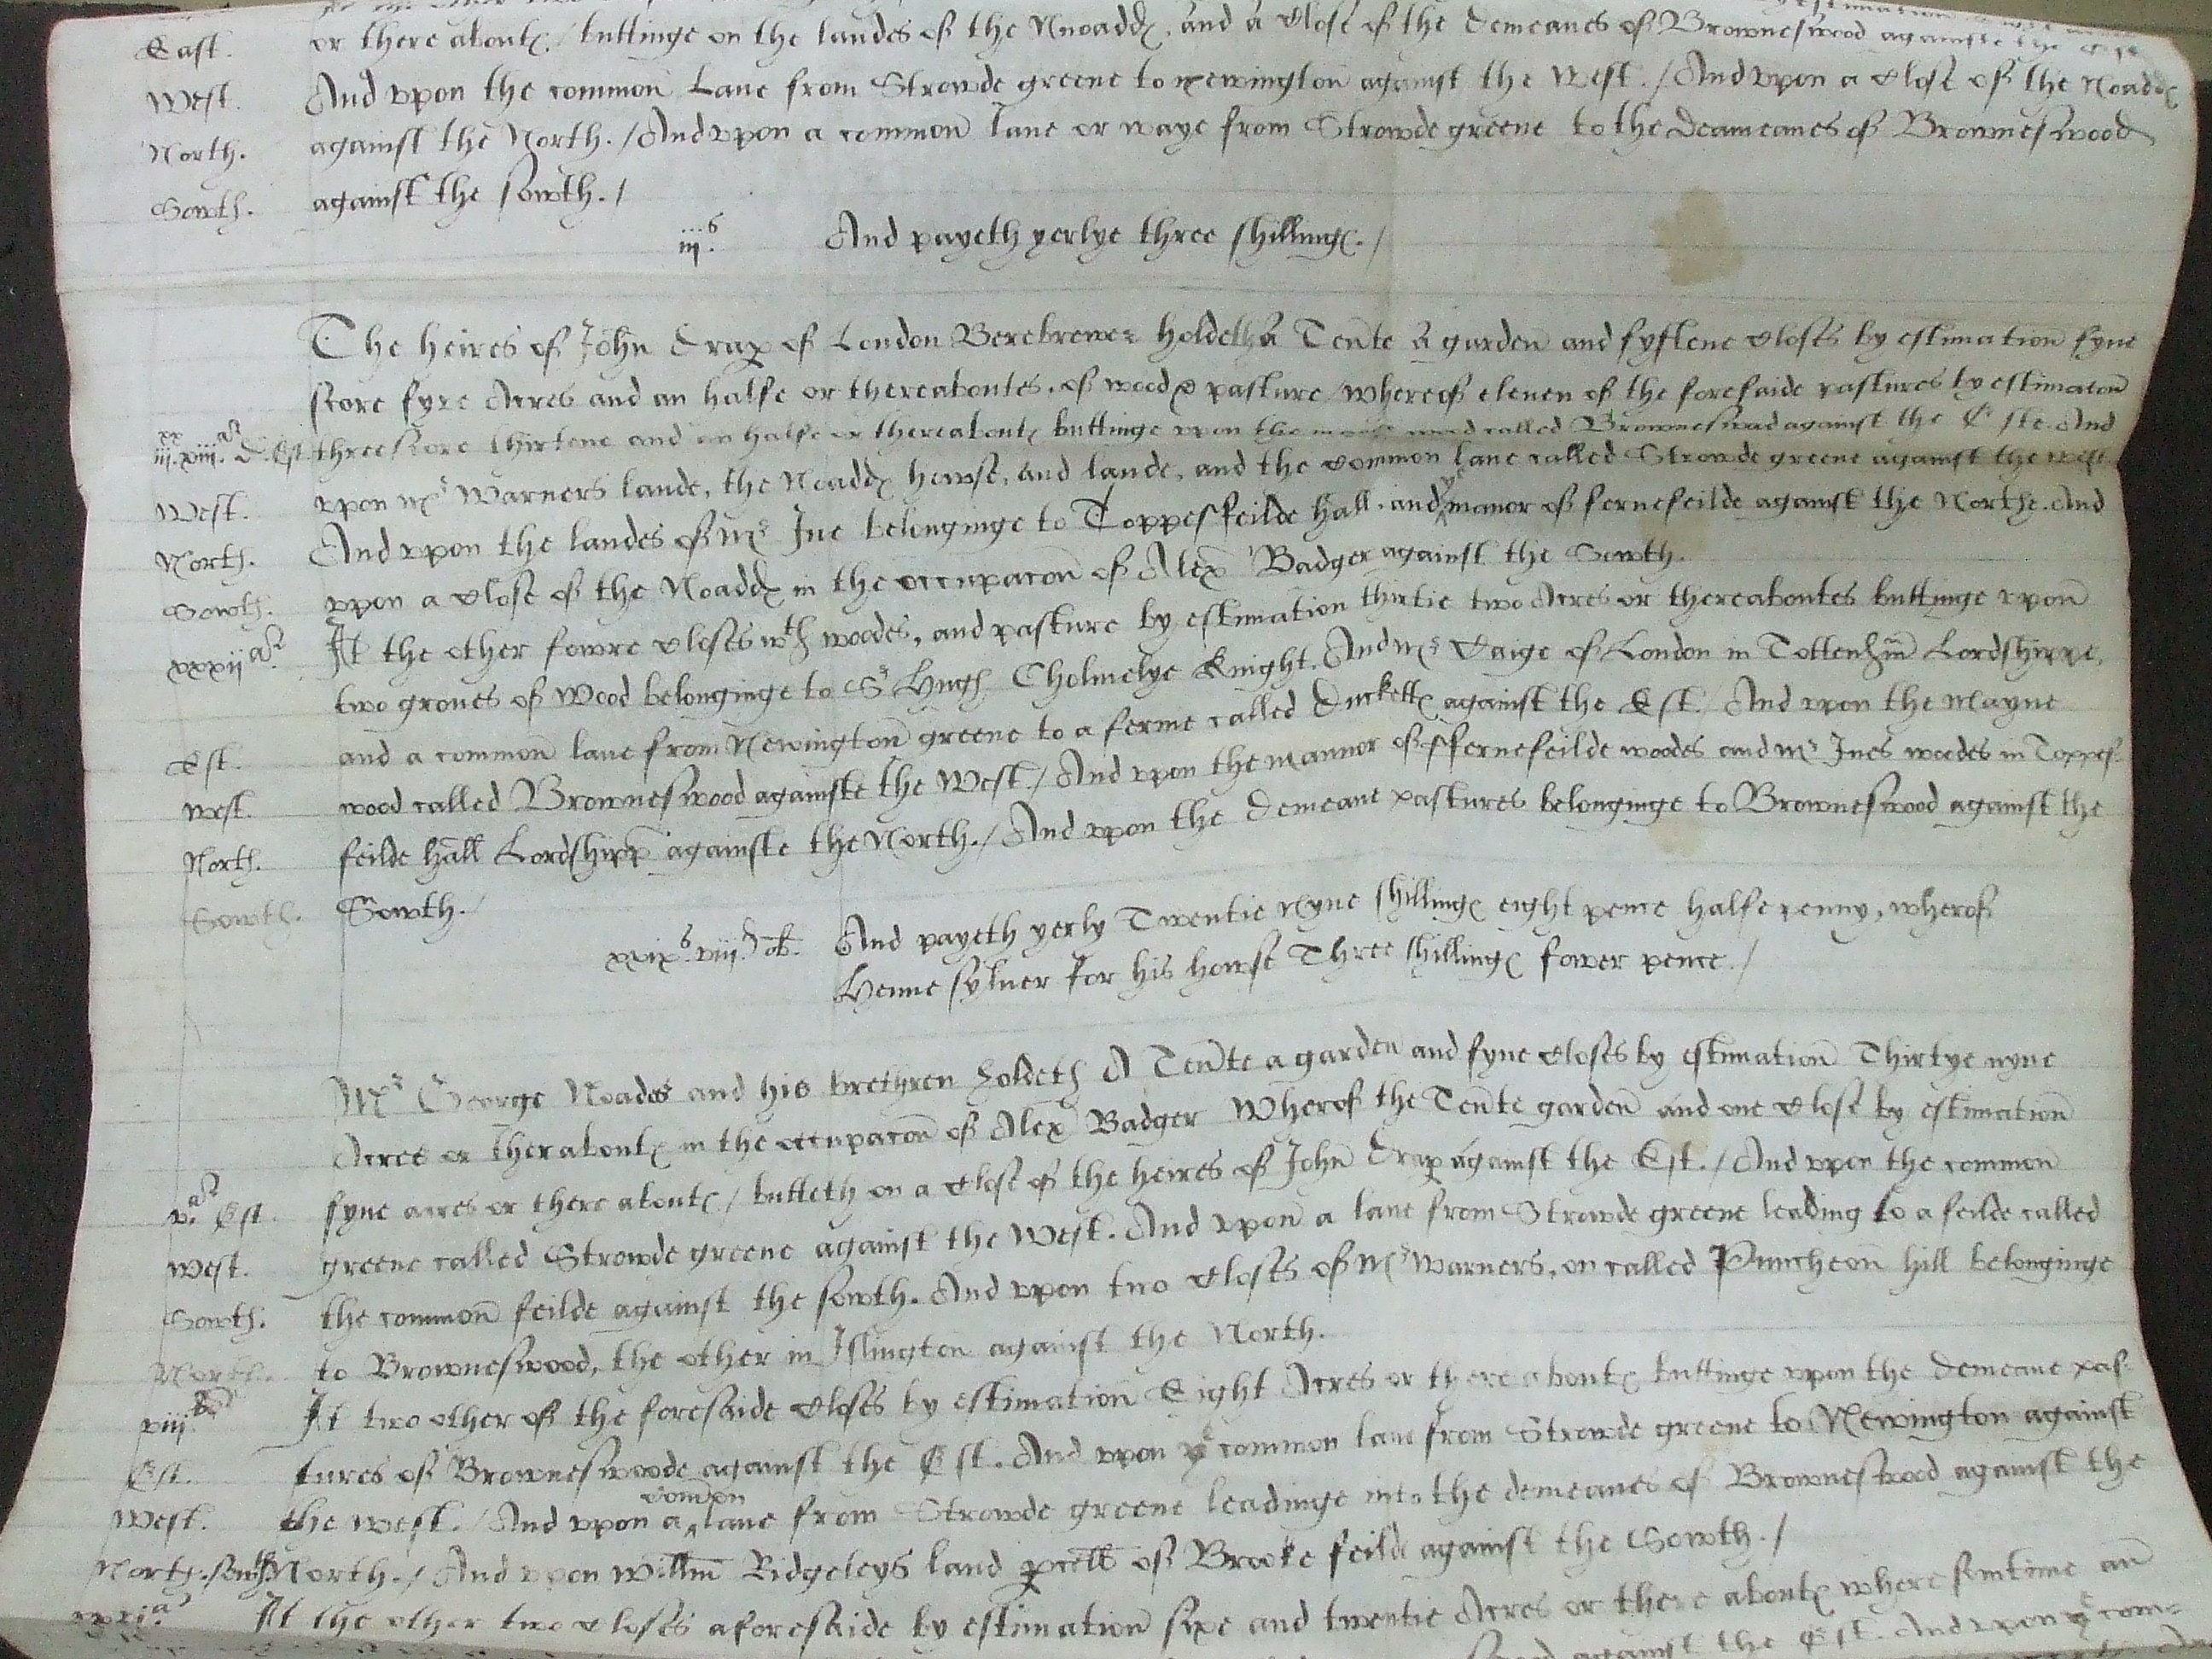 East. or there aboute. / buttinge on the landes of the Nnoadde. and a Close of the demeanes of Browneswood againste the Est
West. And vpon the common Lane from Strowde greene to Newington against the West. / And vpon a Close of the Noadde
North. against the North. / And vpon a common lane or waye from Strowde greene to the deameanes of Browneswood
Sowth. against the sowth. /
iij.s And payeth yerlye three shillinge. /
The heires of John Drap of London Berebrewer holdeth a Tente a garden and fyftene Closes by estimation fyue
score fyve Acres and an halfe or thereaboutes. of wood & pasture / whereof eleuen of the foresaide pastures by estimacon
xx iij.xiij.a D. Est. threescore thirtene and an halfe or thereaboute buttinge vpon the mayne wood called Brownswood against the Este. And
West. vpon mr Warners lande, the Noadde howse, and lande, and the common lane called Strowde greene against the west
North. And vpon the landes of mr Jue belonginge to Toppesfeilde Hall. and ye manor of fernefeilde against the Northe. And
Sowth. vpon a Close of the Noadde in the occupacon of Alex Badger against the Sowth.
xxxij a It the other fowre Closes wth woodes, and pasture by estimation thirtie two Acres or thereaboutes buttinge vpon
two groues of Wood belonginge to Sr Hugh Cholmelye Knight. And mr Caige of London in Tottenhm Lordshippe,
Est. and a common lane from Newington greene to a ferme called Duckette against the Est. / And vpon the Mayne
West. wood called Brownswood againste the West. / And vpon the mannor of ffernefeilde woodes and mr Jues woodes in Toppes-
North. feilde Hall Lordshipp againste the North. / And vpon the demeane pastures belonginge to Brownswood against the
Sowth. Sowth. /
xxix s. viij. d ob. And payeth yerly Twentie Nyne shillinge eight pence halfe penny, wherof
Henne syluer for his howse Three shillinge fower pence. /
Mr George Noades and his brethren holdeth A Tente a garden and fyue Closes by estimation Thirtye nyne
Acres or theraboute in the occupacon of Alex Badger Wherof the Tente garden and one Close by estimation
v.a Est. fyue acres or there aboute / butteth on a Close of the heires of John Drap against the Est. / And vpon the common
West. greene called Strowde greene against the West. And vpon a lane from Strowde greene leading to a feilde called
Sowth. the common feilde against the sowth. And vpon two Closes of mr Warners, on called Puncheon hill belonginge
North. to Browneswood, the other in Islington against the North.
viij. It two other of the foresaide Closes by estimation Eight Acres or there aboute buttinge vpon the demeane pas-
Est. tures of Browneswoode against the Est. And vpon ye common lane from Strowde greene to Newington against
West. the west. / And vpon a comon lane from Strowde greene leadinge into the demeanes of Brownswood against the
North. sowth North. / And vpon Willm Ridgeleys land pcell of Brooke feild against the Sowth. /
xxvj.a It the other two Closes aforesaide by estimation sixe and twentie Acres or there aboute where somtime an
against the Est. And vpon ye com-